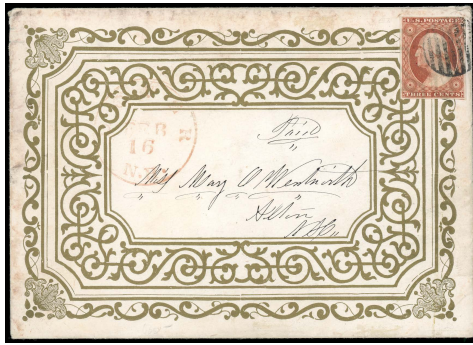 U.S. POSTAGE
THREE CENTS
Paid
FEB
16
N.
Miss Mary O Wentworth
Alton
N.H.